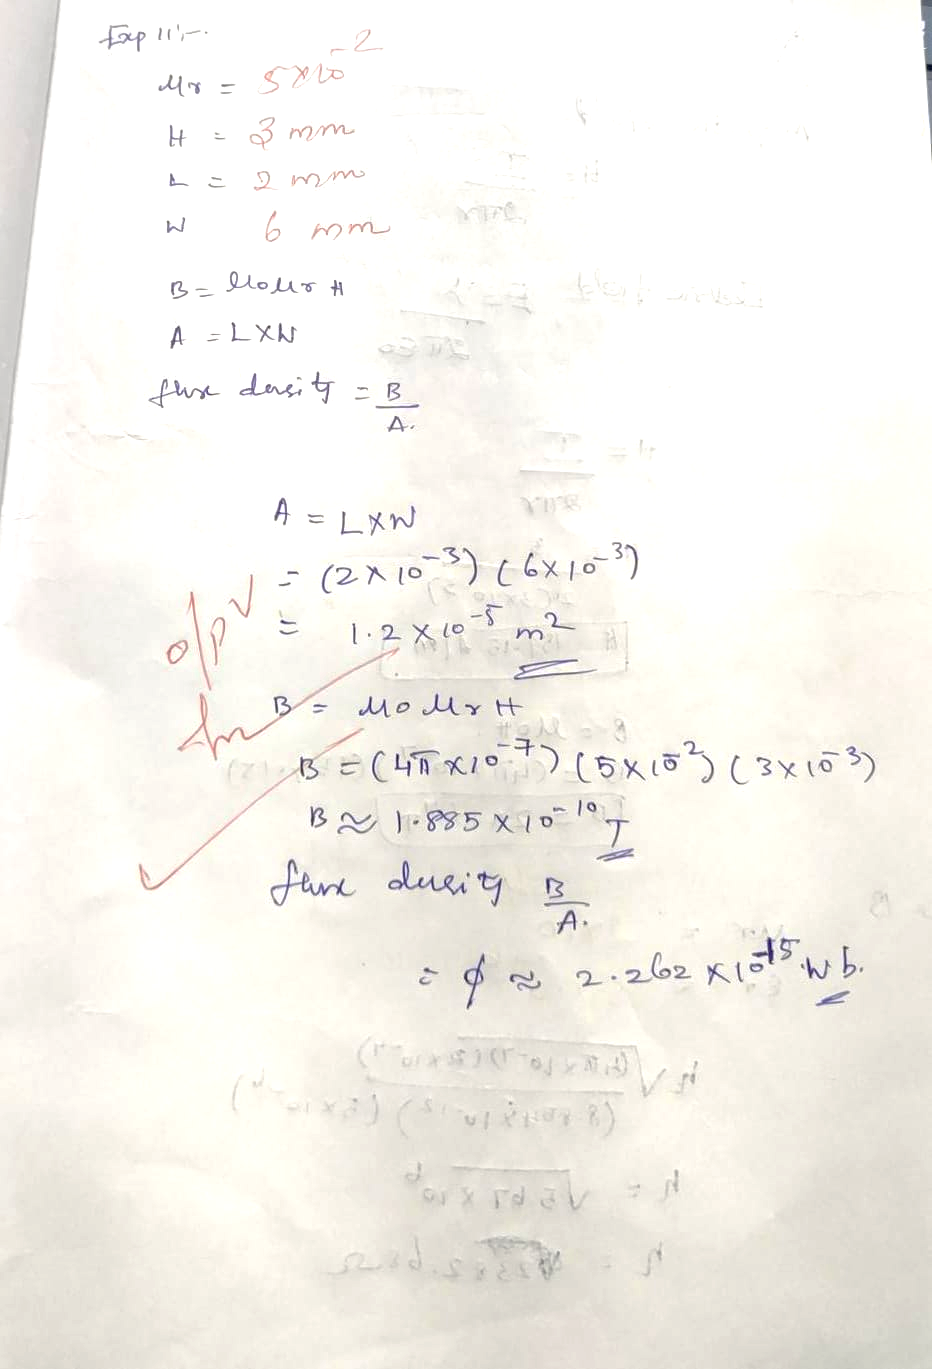 Exp 11:-
μr = 5×10⁻²
H = 3 mm
L = 2 mm
W 6 mm
B = μ0μr H
A = L×W
flux density = B/A.
A = L×W
= (2×10⁻³) (6×10⁻³)
o/p √
= 1.2×10⁻⁵ m²
B = μ0 μr H
B = (4π×10⁻⁷) (5×10⁻²) (3×10⁻³)
B ≈ 1.885×10⁻¹⁰ T
flux density B/A.
= ϕ ≈ 2.262×10⁻¹⁵ wb.